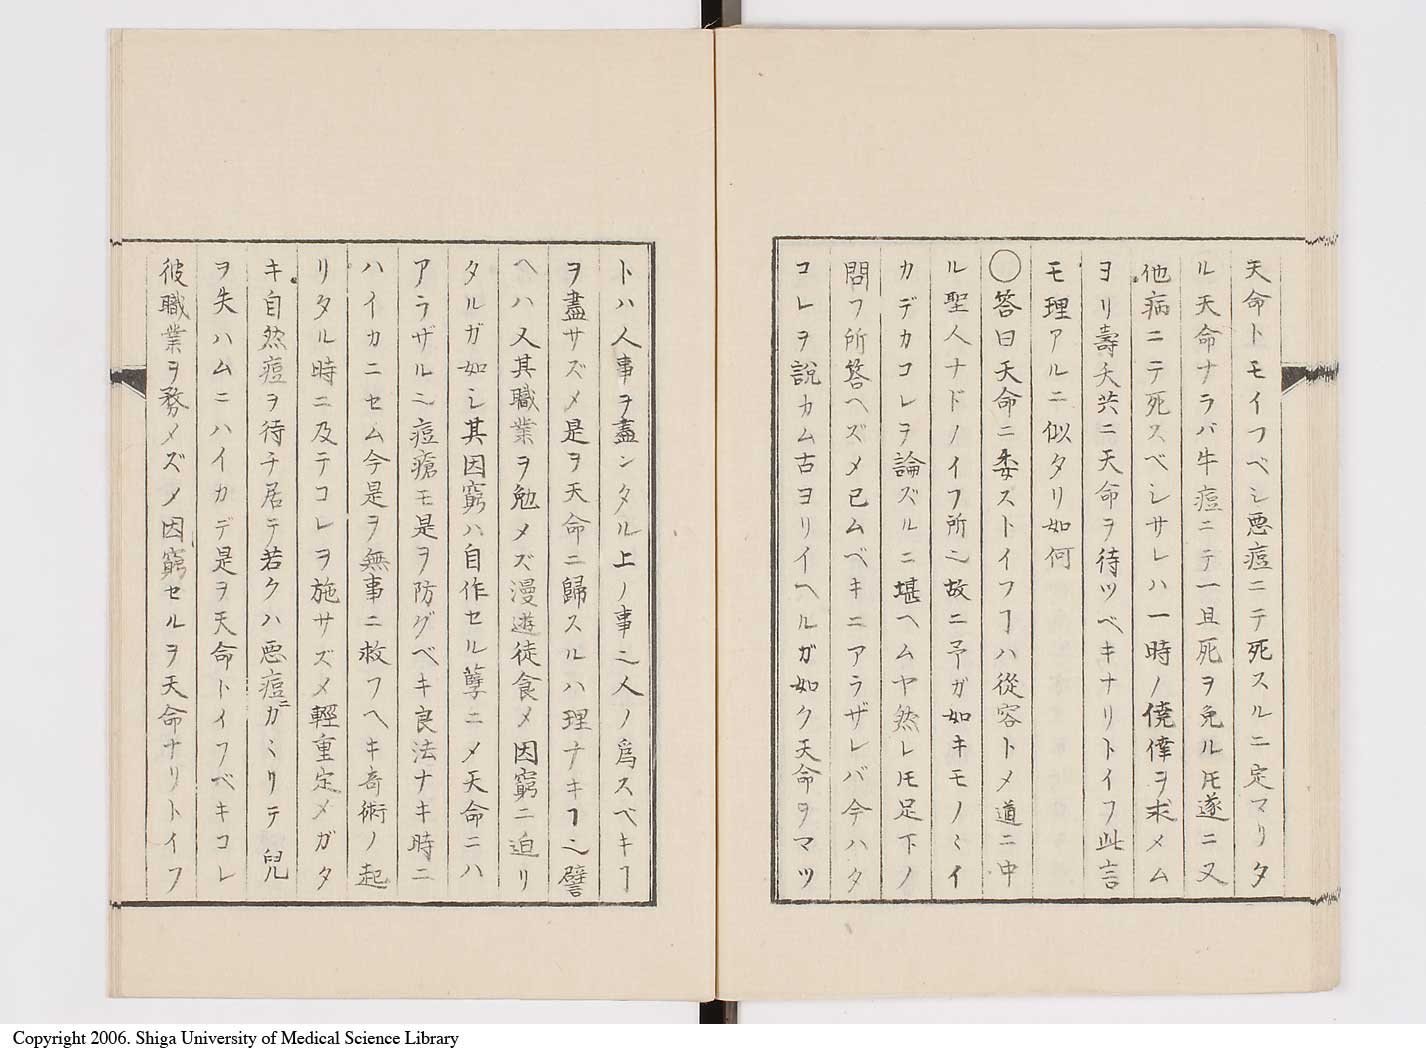 天命トモイフベシ悪痘ニテ死スルニ定マリタ
ル天命ナラバ牛痘ニテ一旦死ヲ免ルヿモ遂ニ又
他病ニテ死スベシサレハ一時ノ僥倖ヲ求メム
ヨリ壽夭共ニ天命ヲ待ツベキナリトイフ此言
モ理アルニ似タリ如何
〇答曰天命ニ委ストイフヿハ從容トメ道ニ中
ル聖人ナドノイフ所之故ニ予ガ如キモノヽイ
カデカコレヲ論ズルニ堪ヘムヤ然レ𪜈足下ノ
問フ所答ヘズメ已ムベキニアラザレバ今ハタ
コレヲ説カム古ヨリイヘルガ如ク天命ヲマツ
トハ人事ヲ盡シタル上ノ事之人ノ爲スベキヿ
ヲ盡サズメ是ヲ天命ニ歸スルハ理ナキヿ之譬
ヘハ又其職業ヲ勉メズ漫遊徒食メ因窮ニ迫リ
タルガ如シ其因窮ハ自作セル孽ニメ天命ニハ
アラザル之痘瘡モ是ヲ防グベキ良法ナキ時ニ
ハイカニセム今是ヲ無事ニ救フヘキ奇術ノ起
リタル時ニ及テコレヲ施サズメ輕重定メガタ
キ自然痘ヲ待チ居テ若クハ悪痘ニカヽリテ兒
ヲ失ハムニハイカデ是ヲ天命トイフベキコレ
彼職業ヲ務メズメ因窮セルヲ天命ナリトイフ
Copyright 2006. Shiga University of Medical Science Library